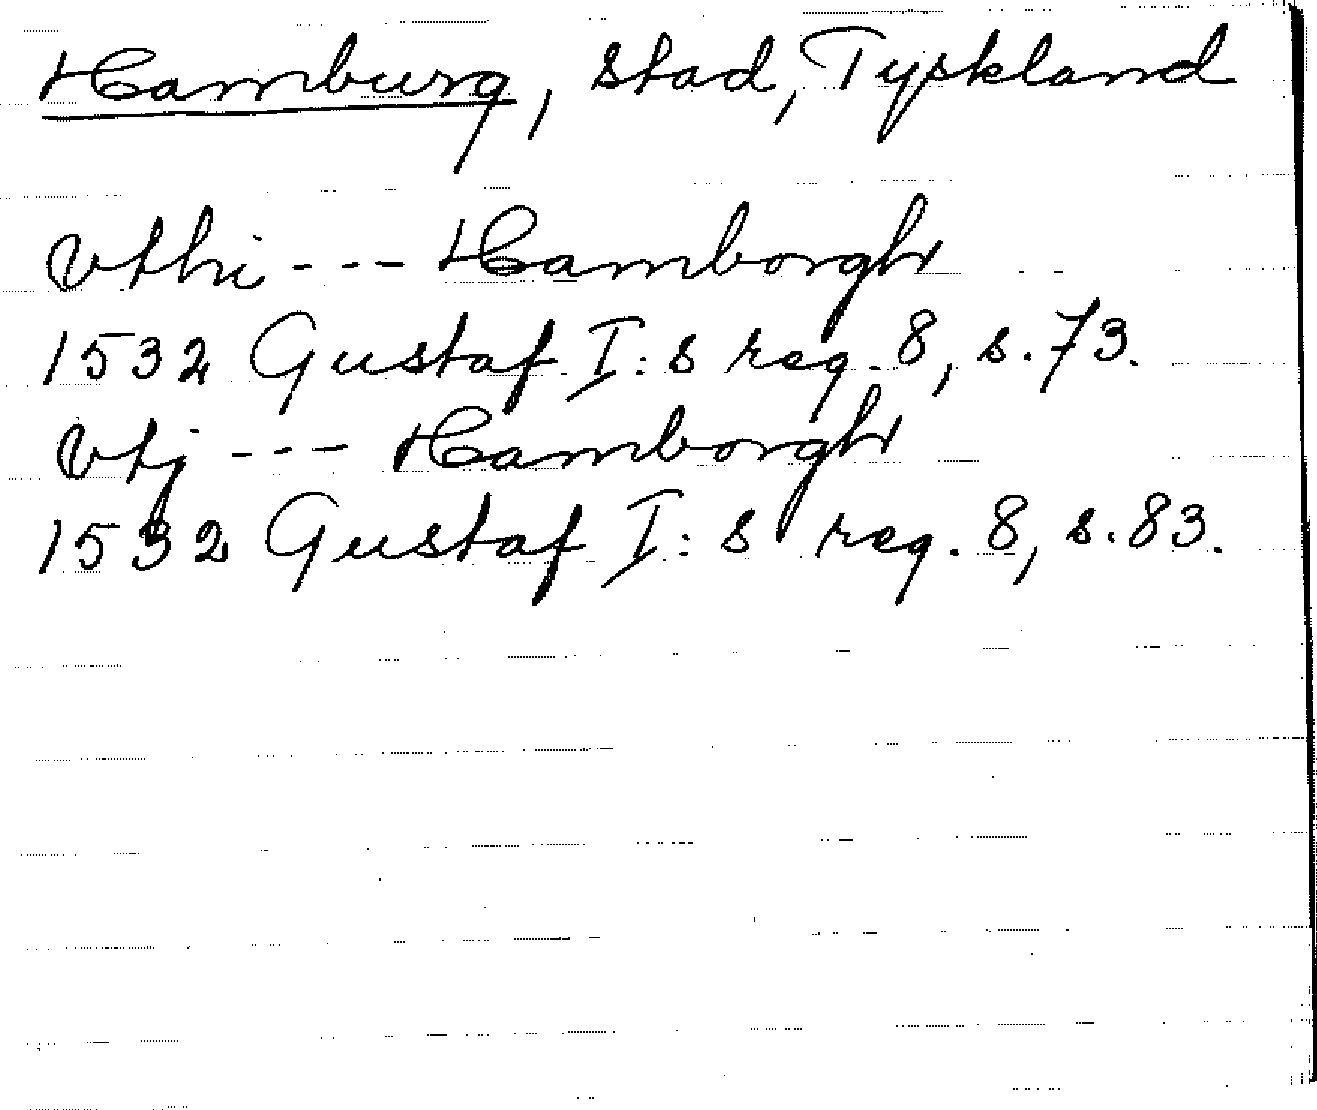 Hamburg, stad, Tyskland
vthi --- Hamborgh
1532 Gustaf I:s reg. 8, s. 73.
vtj --- Hamborgh
1532 Gustaf I:s reg. 8, s. 83.